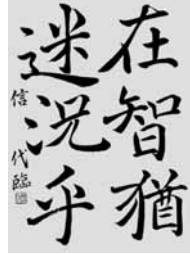 在智猶
迷況乎
信代臨